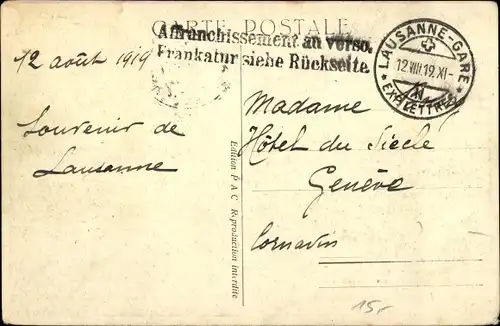 CARTE POSTALE
Affranchissement au verso.
Frankatur siehe Rückseite.
LAUSANNE-GARE
12.VIII.19.XI-
EXP. LETTRES
12 août 1919
Souvenir de
Lausanne
Edition P A C Reproduction interdite
Madame
Hôtel du Siècle
Genève
Cornavin
15,-